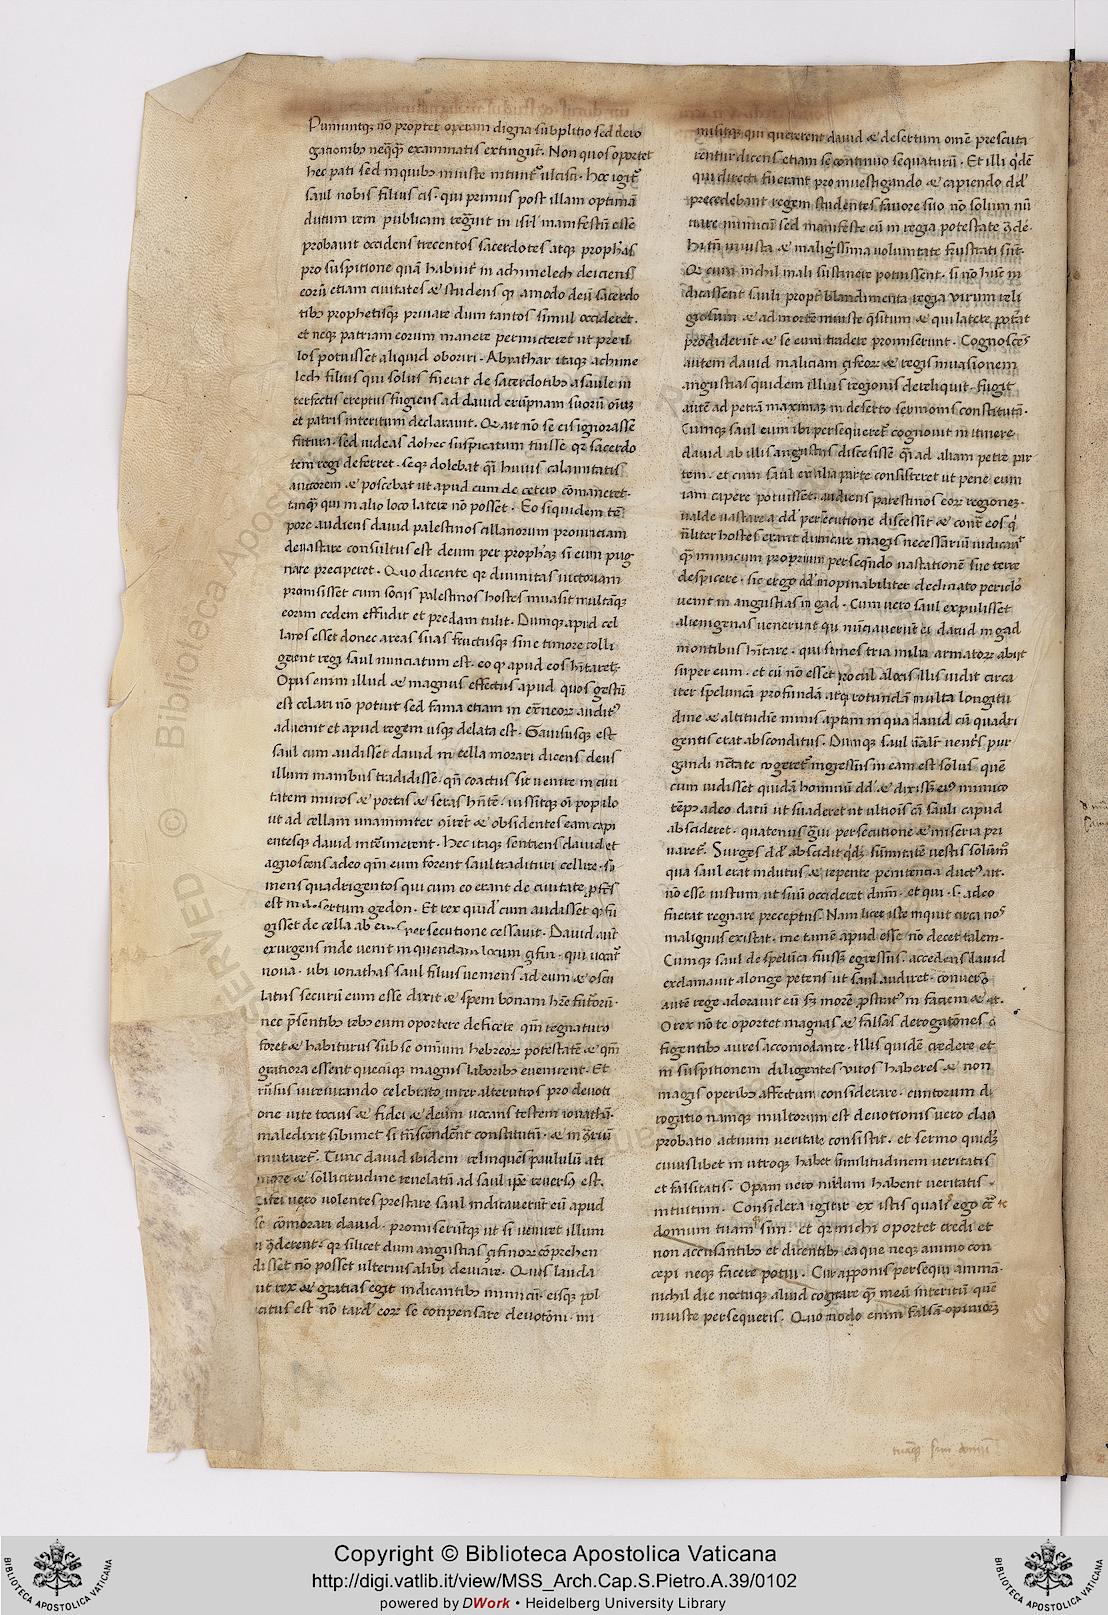 Puniuntq; nō propter operam digna supplitio sed dero
gationib; neq̄q̄ examinatis extingūt̄. Non quos oportet
hec pati sed in quib; iniuste
saul nobis filius cis. qui primus post illam optimā
dutum rem publicam regn̄uit in isrl̄ manifestū esse
probauit occidens trecentos sacerdotes atq; prophās
pro suspitione quā habuit in achimelech deiciens
eorū etiam ciuitates & studens q; amodo deū sacerdo
tib; prophetisq; priuare dum tantos simul occideret.
et neq; patriam eorum manere permicteret ut pre il
los potuisset aliquid oboriri. Abyathar itaq; achime
lech filius qui solus fuerat de sacerdotib; a saule in
terfectis ereptus fugiens ad dauid erūpnam suorū
et patris interitum declarauit. Qᵢ ait nō se eis ignorasse
futura. sed uidens dohec suspicatum fuisse qr sacerdo
tem regi deferret. seq; dolebat qᵢ huius calamitatis
auctorem & poscebat ut apud eum de cetero cōmaneret.
tanq̄ qui in alio loco latere nō posset. Eo siquidem tē
pore audiens dauid palestinos cillanorum prouinciam
deuastare consultus est deum per prophā; si eum pug
nare preciperet. Quo dicente qr diuinitas uictoriam
promisisset cum sociis palestinos hostes inuasit multāq;
eorum cedem effudit et predam tulit. Dumq; apud cel
lanos esset donec areas suas fructusq; sine timore colli
gerent regi saul nunciatum est. eo q; apud eos hītaret.
Opus enim illud & magnus effectus apud quos gestū
est celari nō potuit sed fama etiam in
aduenit et apud regem usq; delata est. Gauisusq; est
saul cum audisset dauid in cella morari dicens deus
illum manibus tradidisse. qn̄ coactus sit uenire in ciui
tatem muros & portas & seras hn̄tē. iussitq; oī populo
ut ad cellam unanimiter & obsidentes eam capi
entesq; dauid interimerent. Hec itaq; sentiens dauid et
agnoscens a deo qm̄ eum forent saul tradituri cellite.
mens quadrigentos qui cum eo erant de ciuitate
est in desertum gedon. Et rex quid̄ cum audisset q; fu
gisset de cella ab eius persecutione cessauit. Dauid aut̄
exurgens inde uenit in quendam locum qui uocat̄
noua. ubi ionathas saul filius ueniens ad eum & oscu
latus securū eum esse dixit & spem bonam hr̄e futurorū.
nec p̄sentib; rebus eum oportere deficere qm̄ regnaturus
foret & habiturus sub se omnium hebreorꝝ potestatē & qm̄
gratiora essent que cūq; magnis laborib; euenirent. Et
rursus iureiurando celebrato inter alterutros pro deuoti
one uite totius & fidei & deum uocans testem ionathas
maledixit sibimet si transcenderent constitutū. & in
mutaret. Tunc dauid ibidem relinquens paululū a ti
more & sollicitudine releuatū ad saul ipse reuersus est.
Zifei uero uolentes prestare saul indicauerunt eū apud
se cōmorari dauid. promiseruntq; ut si ueniret illum
q̄derent. qr scilicet dum angustias cōprehen
disset nō posset ulterius alibi deuiare. Quos lauda
uit rex & gratias egit indicantib; inimicū. eisq; pol
licitus est nō tarde eorꝝ se conpensare deuotōni. mi
misitq; qui quererent dauid & desertum omē prescuta
rentur dicens etiam se continuo sequaturū. Et illi q̄dē
qui directi fuerant pro inuestigando & capiendo dd̄
precedebant regem studentes fauore suo nō solum nū
tiare inimicū sed manifeste eū in regia potestate
hi tn̄ iniusta & malignissima uoluntate frustrati sūt.
Qᵢ cum nichil mali sustinere potuissent. si nō hūc in
dicassent sauli propt̄ blandimenta regia uirum reli
giosum & ad mortē iniuste q̄situm & qui latere poterat
prodiderūt & se eum tradere promiserunt. Cognoscēs
autem dauid maliciam & regis inuasionem
angustias quidem illius regionis dereliquit. fugit
autē ad petrā maxima; in deserto sermonis constitutā.
Cumq; saul eum ibi persequeret cognouit in itinere
dauid ab illis angustiis discessisse qᵢ ad aliam petre par
tem. et cum saul ex alia parte consisteret ut pene eum
iam capere potuisset. audiens palestinos eorꝝ regiones
ualde uastare a dd̄ persecutione discessit & contra eos
naturaliter hostes erant dimicare magis necessariū iudicans
q̄ inimicum proprium persequēdo uastationē sue terre
despicere. sic ergo dd̄ inopinabiliter declinato periclo
uenit in angustias in gad. Cum uero saul expulisset
alienigenas uenerunt qui nūciauerūt ei dauid in gad
montibus hītare. qui sumens tria milia armatorꝝ abiit
super eum. et cū nō esset procul a locis illis uidit circa
iter speluncā profundā atq; rotundā multa longitu
dine & altitudīe nimis aptam in qua dauid cū quadri
gentis erat absconditus. Dumq; saul pur
gandi necessitate cogeret ingressus in eam est solus quē
cum uidisset quidā hominū dd̄ & dixisset ei inimico
tēpus a deo datū ut suaderet ut ultiōis cā sauli capud
abscideret. quatenus persecutione & miseria pri
uaret. Surgēs dd̄ abscidit quidē sūmitatē uestis solum
qua saul erat indutus & repente penitentia ductus ait.
nō esse iustum ut suū occideret dnm̄. et qui. s. a deo
fuerat regnare preceptus. Nam licet iste inquit circa nos
malignus existat. me tamē apud esse nō decet talem.
Cumq; saul de spelūca fuisset egressus. accedens dauid
exclamauit a longe petens ut saul audiret. conuerso
autē rege adorauit eū sᵢ morē prostrat in faciem & ait.
O rex nō te oportet magnas & falsas derogatōnes
figentib; aures accomodante. illis quidē credere et
in suspitionem diligentes uiros haberes & non
magis operib; affectum considerare. cuntorum de
rogatio namq; multorum est deuotionis uero clara
probatio actuum ueritate consistit. et sermo quide;
cuiuslibet in utroq; habet similitudinem ueritatis
et falsitatis. Opam uero nudum habent ueritatis
intuitum. Considera igitur ex istis qualis ego
domum tuam sim. et qr michi oportet credi et
non accusantib; et dicentib; ea que neq; animo con
cepi neq; facere potui. Cur apponis persequi animā
nichil die noctuq; aliud cogitare q̄ meū interitū quē
iniuste persequeris. Quo modo enim falsā opinionē
tuāq; sim domū
Copyright © Biblioteca Apostolica Vaticana
http://digi.vatlib.it/view/MSS_Arch.Cap.S.Pietro.A.39/0102
powered by DWork • Heidelberg University Library